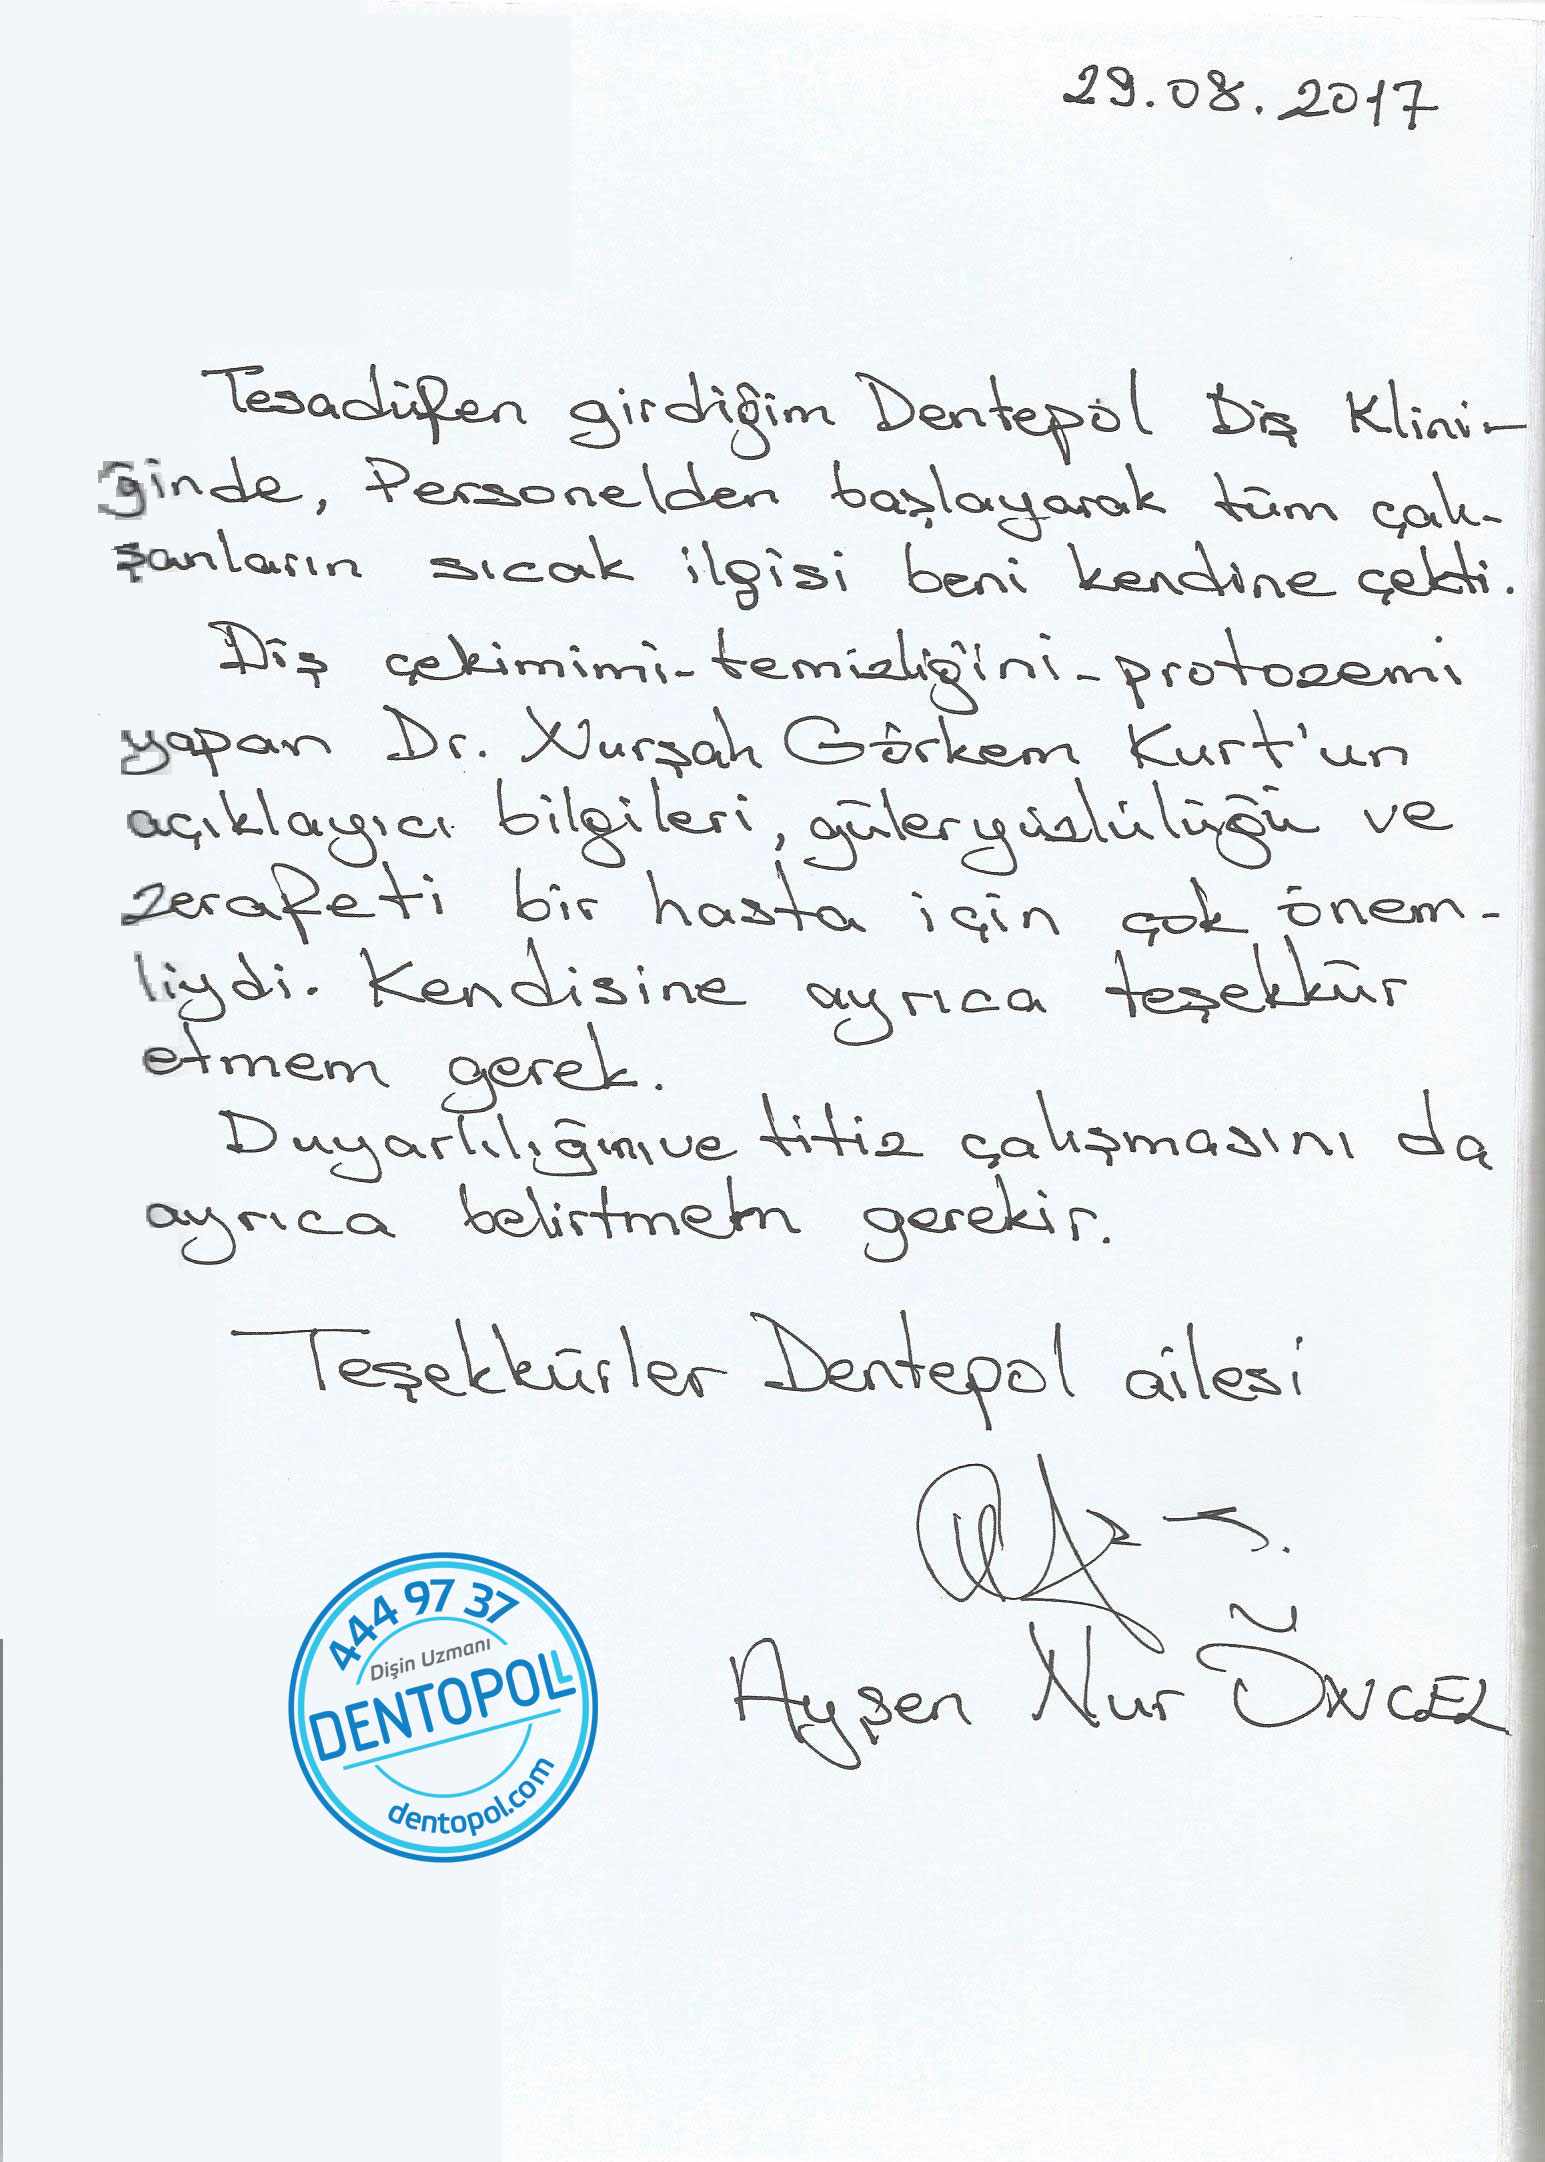 29.08.2017
Tesadüfen girdiğim Dentepol Diş Klini-
ğinde, Personelden başlayarak tüm çalı-
şanların sıcak ilgisi beni kendine çekti.
Diş çekimimi-temizliğini-protozemi
yapan Dr. Nurşah Görkem Kurt'un
açıklayıcı bilgileri, güleryüzlülüğü ve
zerafeti bir hasta için çok önem-
liydi. Kendisine ayrıca teşekkür
etmem gerek.
Duyarlılığını ve titiz çalışmasını da
ayrıca belirtmem gerekir.
Teşekkürler Dentepol ailesi
Ayşen Nur ÖNCEL
444 97 37
Dişin Uzmanı
DENTOPOL
dentopol.com